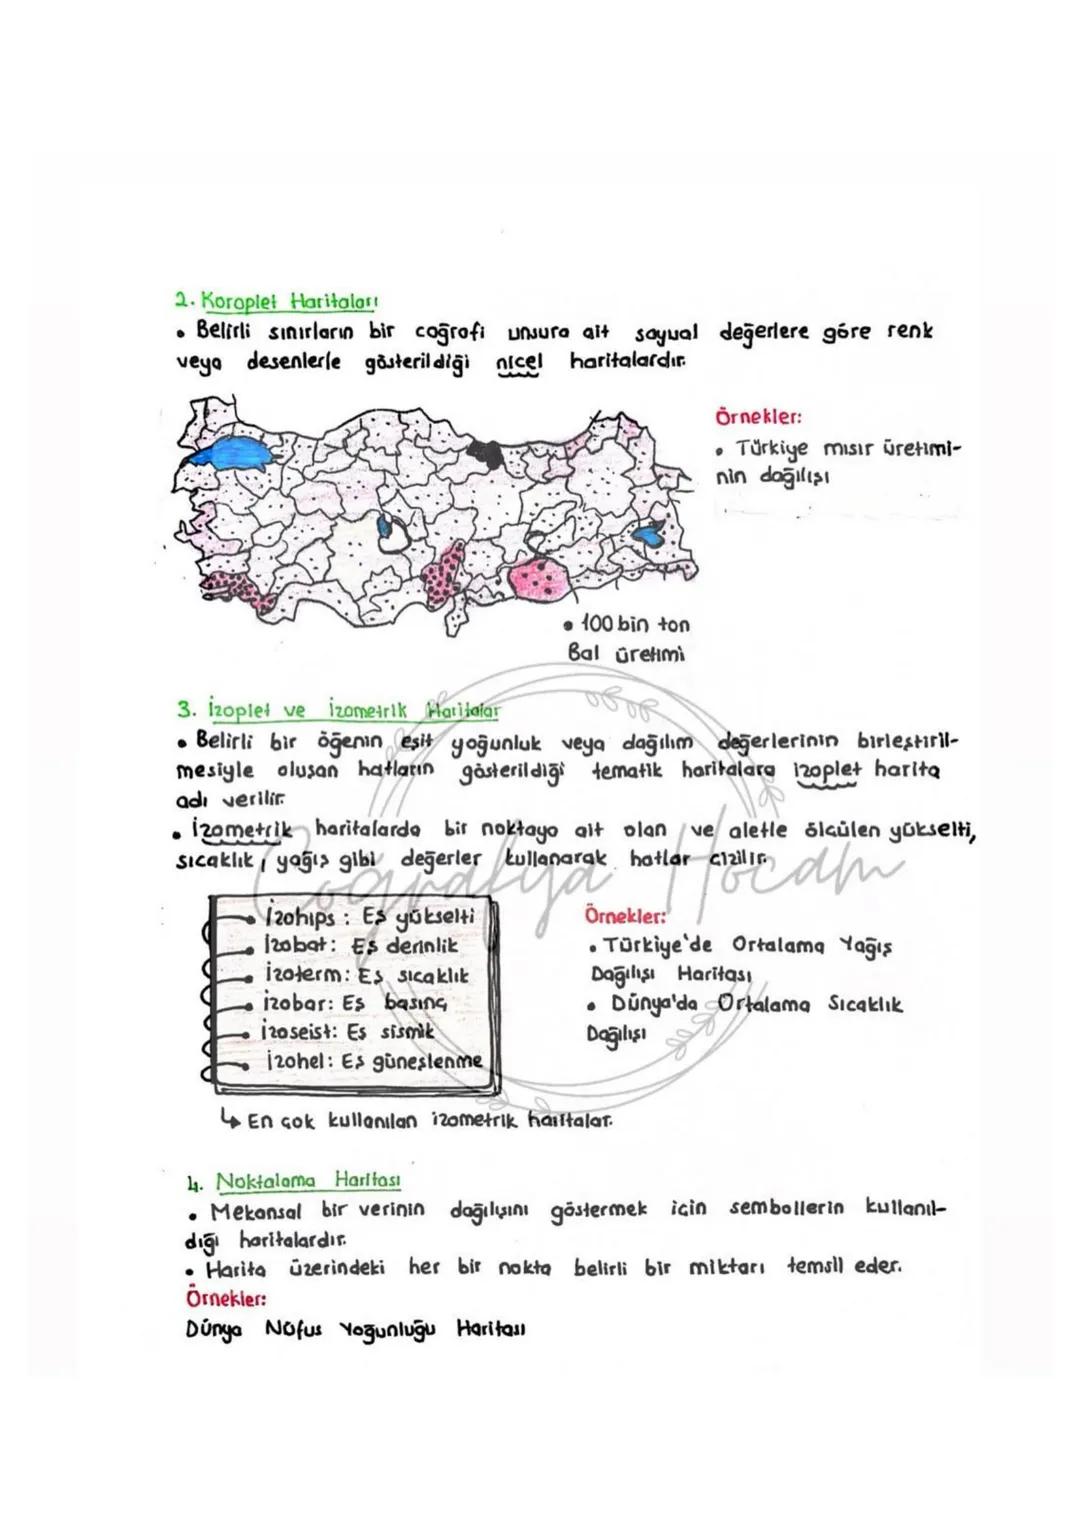 2. Koroplet Haritaları
• Belirli sınırların bir coğrafi unsura ait sayısal değerlere göre renk
veya desenlerle gösterildiği nicel haritalardır.
Örnekler:
• Türkiye mısır üretimi-
nin dağılışı
• 100 bin ton
Bal üretimi
3. İzoplet ve İzometrik Haritalar
• Belirli bir öğenin eşit yoğunluk veya dağılım değerlerinin birleştiril-
mesiyle oluşan hatların gösterildiği tematik haritalara izoplet harita
adı verilir.
• İzometrik haritalarda bir noktaya ait olan ve aletle ölçülen yükselti,
sıcaklık, yağış gibi değerler kullanarak hatlar çizilir.
Coğrafya Hocam
İzohips : Eş yükselti
İzobat: Eş derinlik
İzoterm: Eş sıcaklık
İzobar: Eş basınç
İzoseist: Eş sismik
İzohel: Eş güneşlenme
Örnekler:
• Türkiye'de Ortalama Yağış
Dağılışı Haritası
• Dünya'da Ortalama Sıcaklık
Dağılışı
↳ En çok kullanılan izometrik haritalar.
4. Noktalama Haritası
• Mekansal bir verinin dağılışını göstermek için sembollerin kullanıl-
dığı haritalardır.
• Harita üzerindeki her bir nokta belirli bir miktarı temsil eder.
Örnekler:
Dünya Nüfus Yoğunluğu Haritası